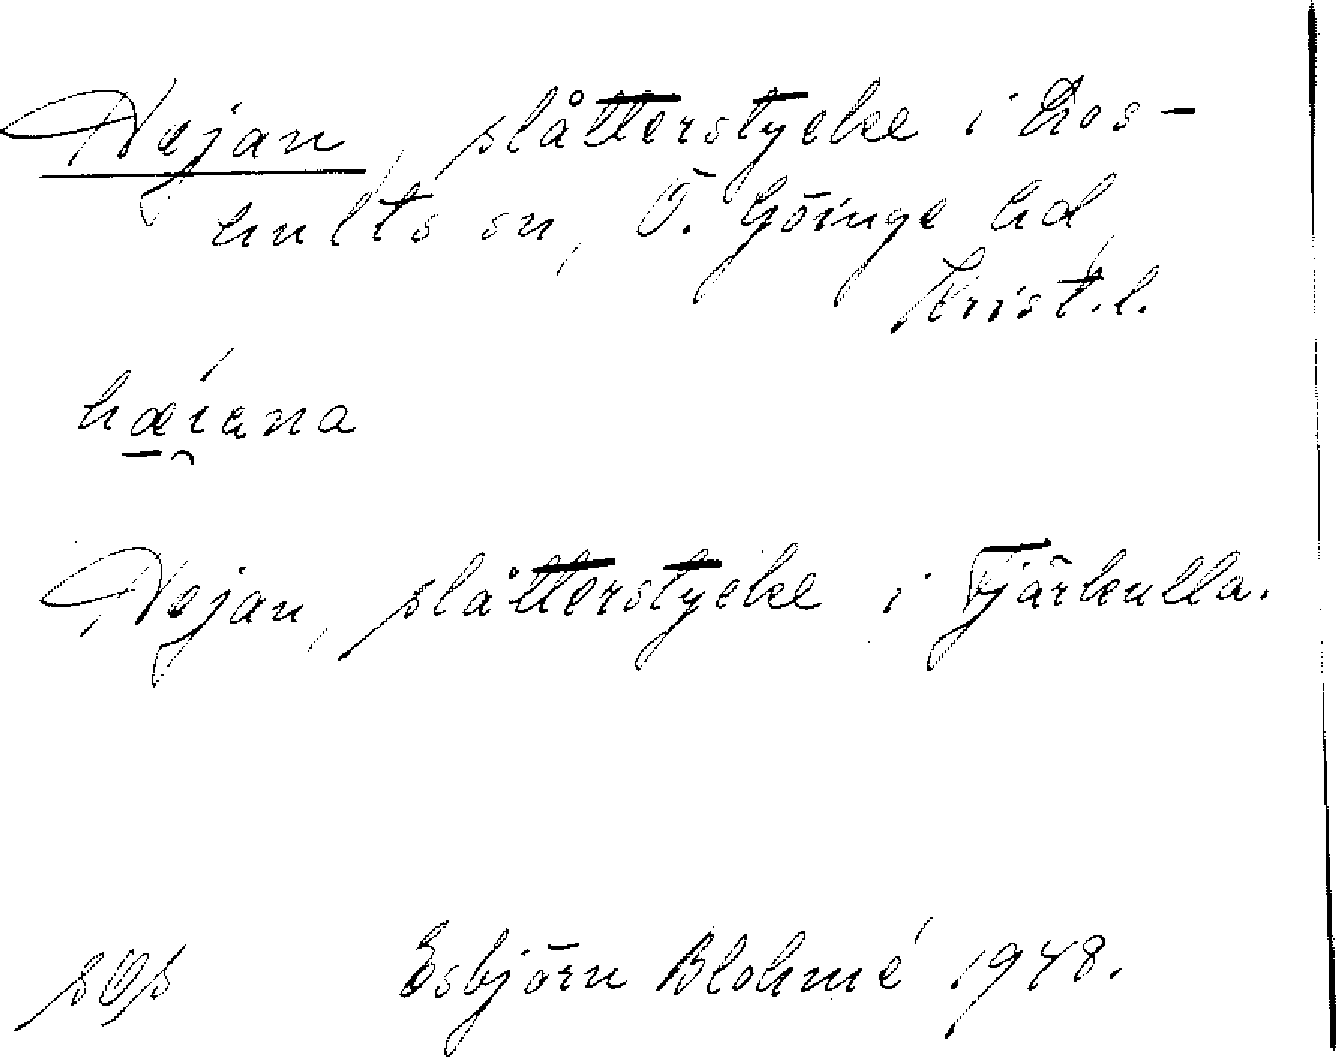 Hejan, slåtterstycke i Los-
hults sn, Ö. Göinge hd,
Krist. l.
hæi̯əna
Hejan, slåtterstycke i Tjärkulla.
Esbjörn Blohmé 1948.